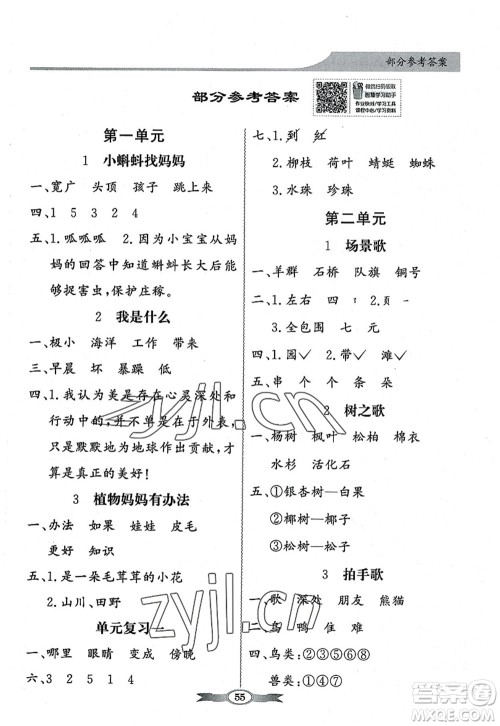 部分参考答案
部分参考答案
微信扫码领取
智慧学习助手
作业快对/学习工具
课程中心/学习资料
第一单元
1 小蝌蚪找妈妈
一、宽广 头顶 孩子 跳上来
四、1 5 3 2 4
五、1.呱呱呱 2.因为小宝宝从妈
妈的回答中知道蝌蚪长大后能
够捕害虫,保护庄稼。
2 我是什么
一、极小 海洋 工作 带来
三、早晨 坏 暴躁 低
四、1.我认为美是存在心灵深处和
行动中的,并不单是在于外表,
只是默默地为地球作出贡献,才
算是真正的美好!
3 植物妈妈有办法
一、办法 如果 娃娃 皮毛
更好 知识
五、1.是一朵毛茸茸的小花
2.山川、田野
单元复习一
一、哪里 眼睛 变成 傍晚
六、3 2 5 1 4
七、1.到 红
2.柳枝 荷叶 蜻蜓 蜘蛛
3.水珠 珍珠
第二单元
1 场景歌
一、羊群 石桥 队旗 铜号
二、1.左右 四 2.页
3.全包围 七 元
四、1.园✓ 2.带✓ 藏✓
五、串 个 个 条 条
2 树之歌
一、杨树 枫叶 松柏 棉衣
水杉 活化石
五、①银杏树—白果
②椰树—椰子
③松树—松子
3 拍手歌
一、歌 深处 朋友 熊猫
二、鸟 鸭 住 难
四、鸟类:②③⑤⑥⑧
兽类:①④⑦
55
zyjl.cn
zyjl.cn
答案圈
MXQE.COM